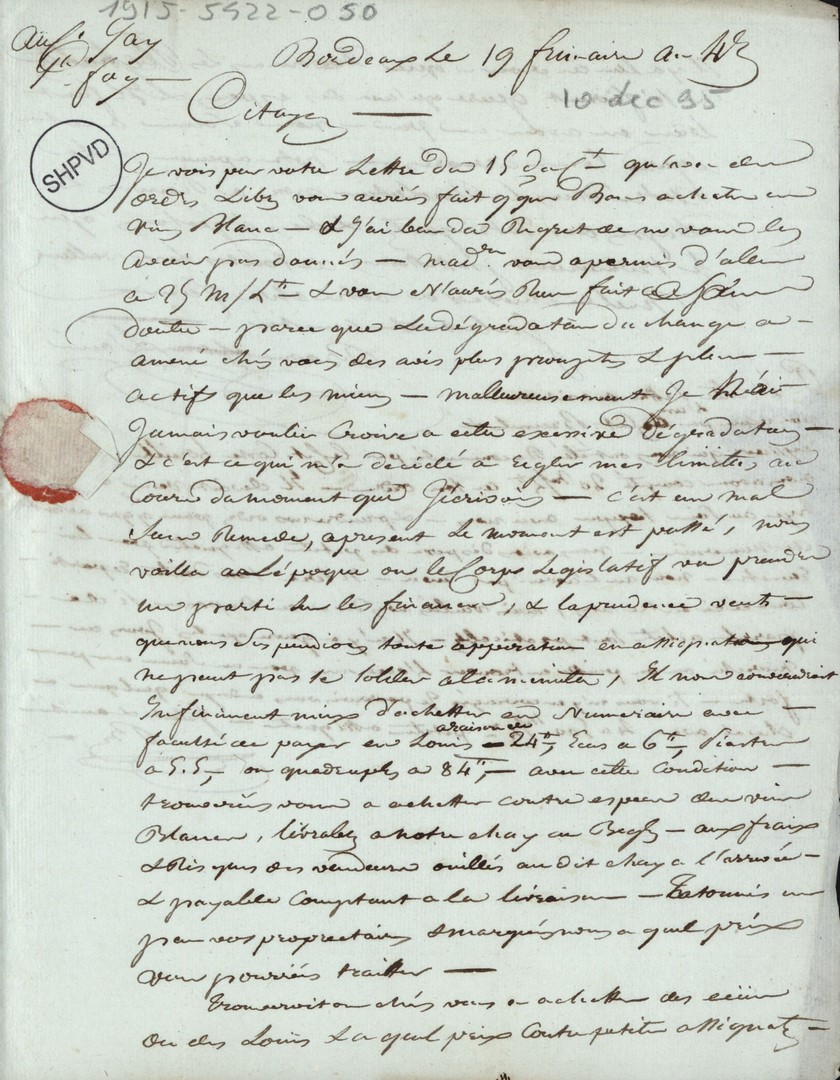 1915-5422-050
Gay
foy —
Bordeaux Le 19 frimaire an 4e
10 dec 95
Citoyen —
SHPVD
Je vois par votre Lettre du 15 du Ct qu'avec des
ordres Libres vous auriés fait qque Bons achats en
vins Blanc — & J'ai bien du Regret de ne vous les
avoir pas donnés — vous a permis d'aller
a 25 m/Lt & vous N'aurés Rien fait
doute — parce que La dégradation du change a —
amené chés vous des avis plus prompts & plus —
actifs que les miens — malleureusement Je n'ai
Jamais voulu Croire a cette excessive dégradation —
& c'est ce qui m'a décidé à Regler mes limites au
Cours du moment que J'écrivois — c'est un mal
sans Remede, apresent Le moment est passé, nous
voilla a L'époque ou le Corps Legislatif va prendre
un parti sur les finances, & la prudence veut —
que nous suspendions toute opperation en assignats qui
ne peut pas se solder a la minute, Il nous conviendroit
Infiniment mieux d'achetter en Numeraire avec —
faculté de payer en Louis a raison de 24tt, Ecus a 6tt, Piastres
à 5.5, ou quadruples a 84tt, — avec cette Condition —
trouveriés vous a achetter contre especes des vins
Blancs, livrables a notre chay au — aux fraix
& Risques des vendeurs ouillés au dit chay a l'arrivée —
& payable Comptant a la livraison — Tatonnés un
peu vos propriétaires & marqués nous a quel prix
vous pourriés traitter —
Trouveroit on chés vous a achetter des écus
ou des Louis & a quel prix Contre petits assignats —